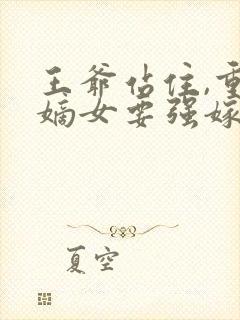 王爷站住,重
嫡女要强嫁
夏空